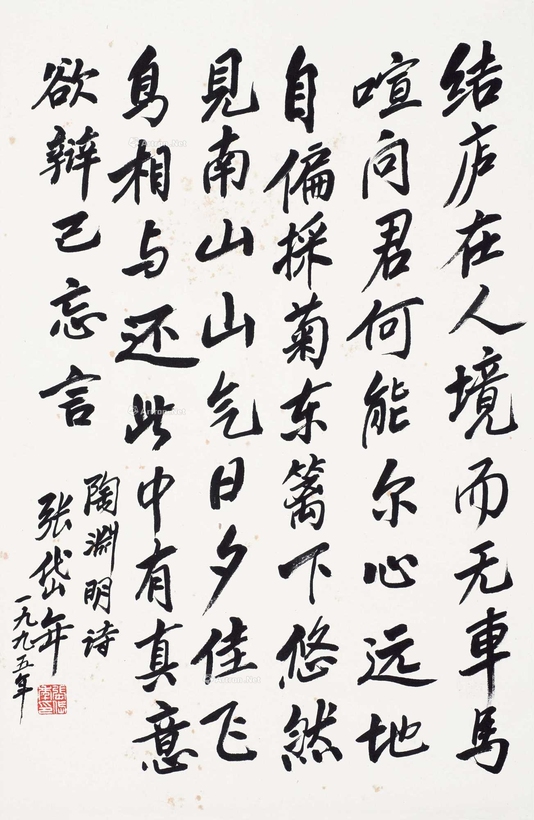 结庐在人境而无車馬
喧问君何能尔心远地
自偏採菊东篱下悠然
見南山山气日夕佳飞
鸟相与还此中有真意
欲辩已忘言
陶淵明诗
张岱年
一九九五年